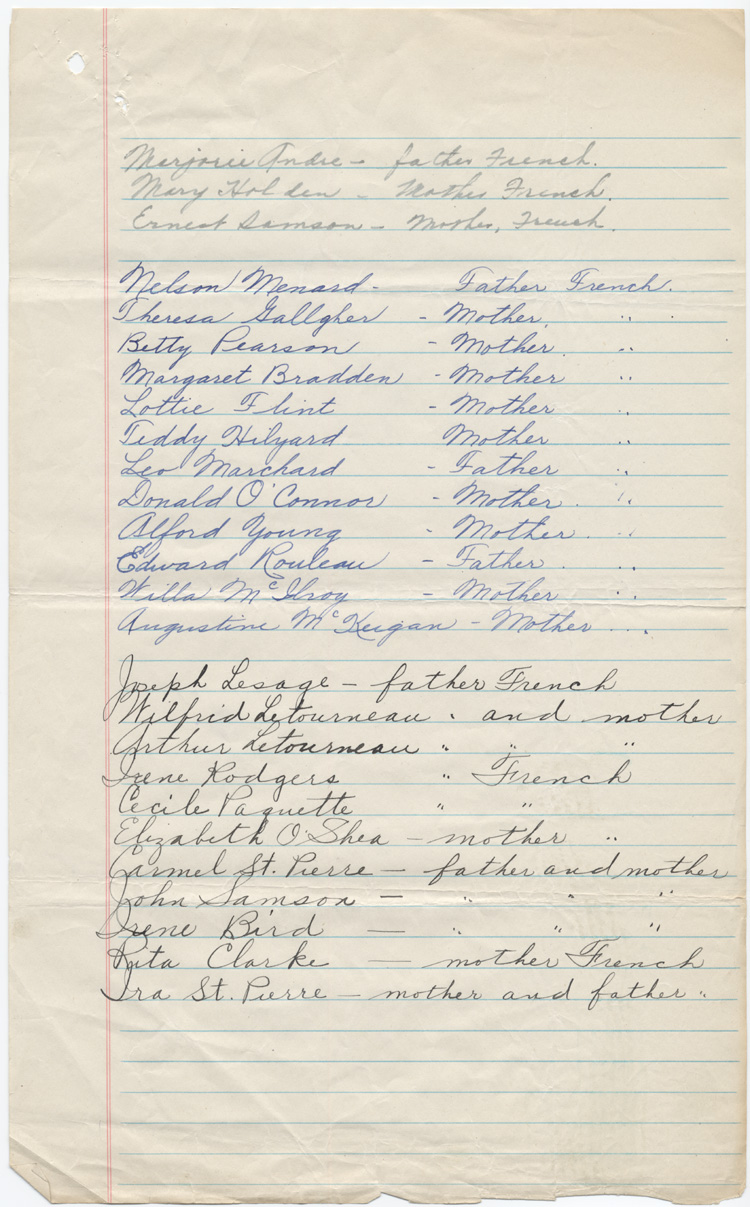 Marjorie Andre - father French.
Mary Holden - Mother French.
Ernest Samson - Mother, French.
Nelson Menard - Father French.
Theresa Gallgher - Mother. "
Betty Pearson - Mother. "
Margaret Bradden - Mother "
Lottie Flint - Mother "
Teddy Hilyard Mother "
Leo Marchard - Father "
Donald O'Connor - Mother. "
Alford Young - Mother. "
Edward Rouleau - Father. "
Willa McIlroy - Mother "
Augustine McKeigan - Mother "
Joseph Lesage - father French
Wilfrid Letourneau " and mother
Arthur Letourneau " " "
Irene Rodgers " French
Cecile Paquette " "
Elizabeth O'Shea - mother "
Carmel St. Pierre - father and mother
John Samson - " " "
Irene Bird - " " "
Rita Clarke - mother French
Ira St. Pierre - mother and father "